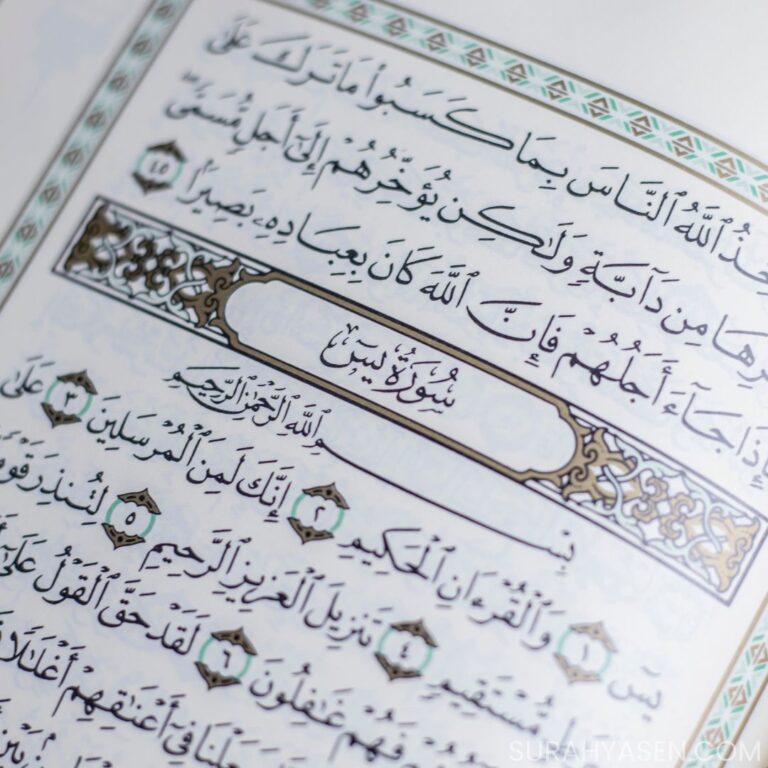 ٱللَّهُ ٱلنَّاسَ بِمَا كَسَبُوا۟ مَا تَرَكَ عَلَىٰ
مِن دَآبَّةٍ وَلَٰكِن يُؤَخِّرُهُمْ إِلَىٰٓ أَجَلٍ مُّسَمًّى ۖ
جَآءَ أَجَلُهُمْ فَإِنَّ ٱللَّهَ كَانَ بِعِبَادِهِۦ بَصِيرًۢا ٤٥
سُورَةُ يسٓ
بِسْمِ ٱللَّهِ ٱلرَّحْمَٰنِ ٱلرَّحِيمِ
يسٓ ١ وَٱلْقُرْءَانِ ٱلْحَكِيمِ ٢ إِنَّكَ لَمِنَ ٱلْمُرْسَلِينَ ٣ عَلَىٰ
مُّسْتَقِيمٍ ٤ تَنزِيلَ ٱلْعَزِيزِ ٱلرَّحِيمِ ٥ لِتُنذِرَ
فَهُمْ غَٰفِلُونَ ٦ لَقَدْ حَقَّ ٱلْقَوْلُ عَلَىٰٓ
فِىٓ أَعْنَٰقِهِمْ أَغْلَٰلًا
SURAHYASEEN.COM